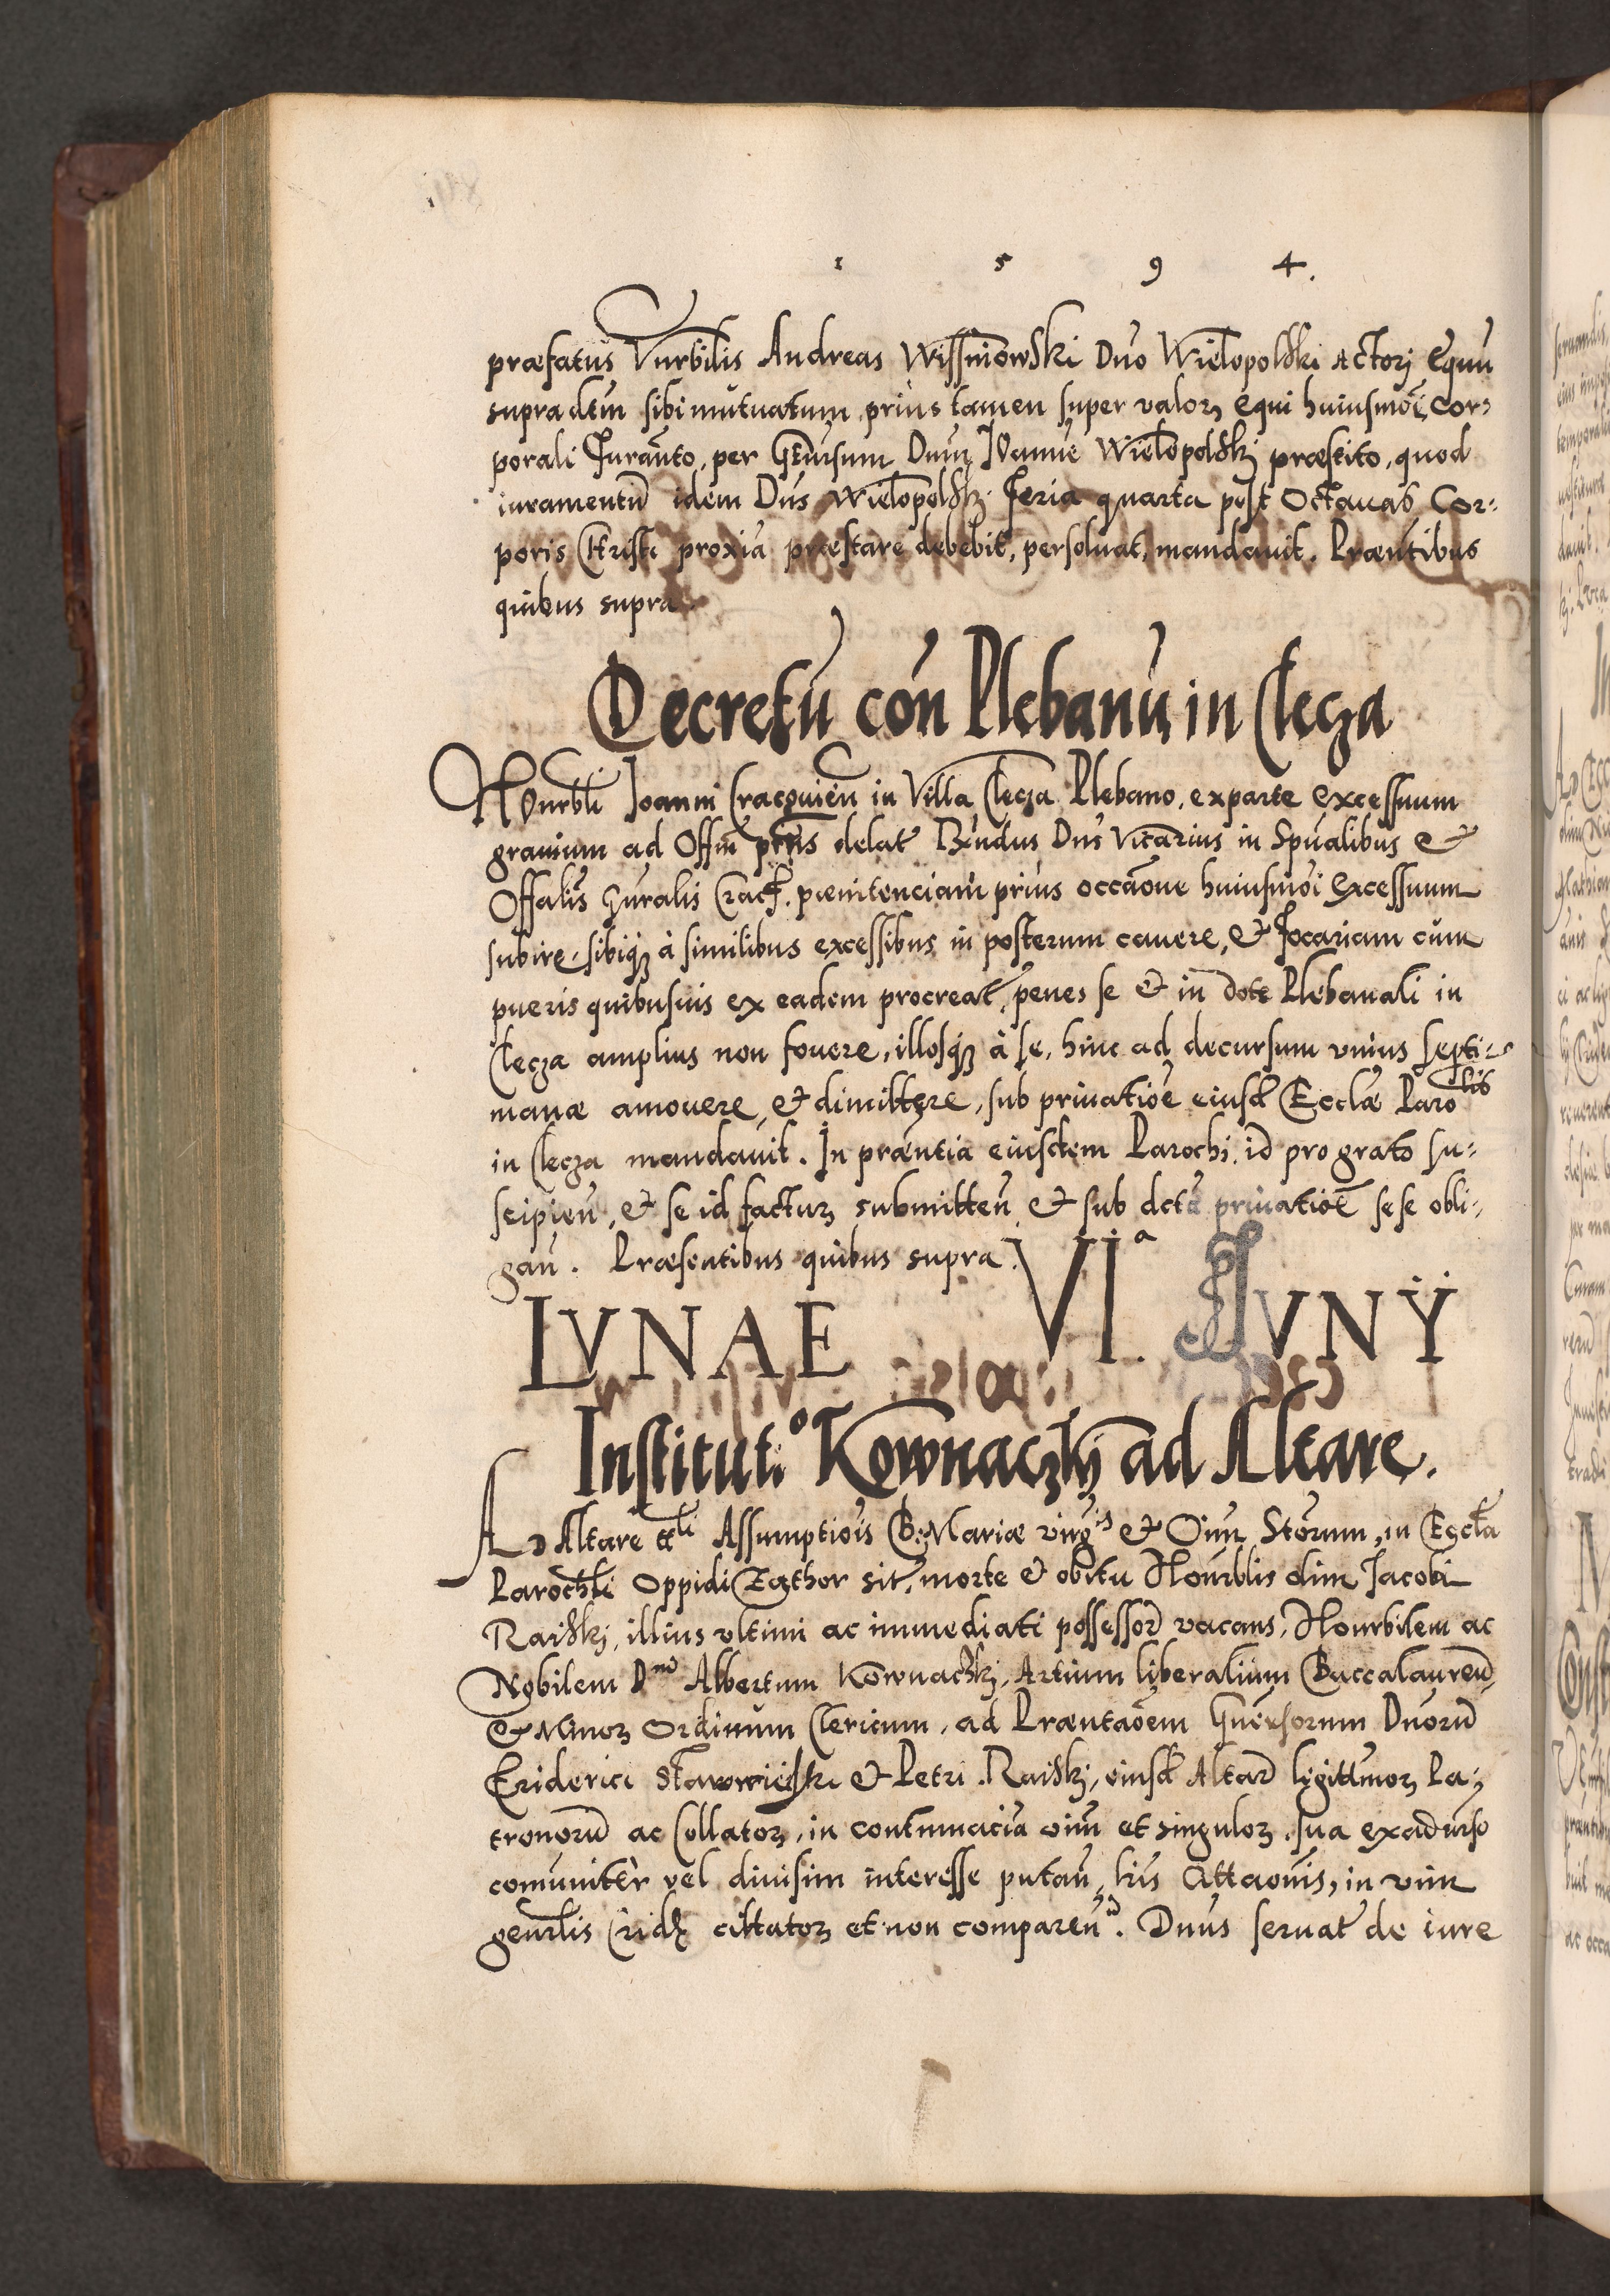 1 5 9 4.
præfatus Vnrbilis Andreas Wissniowski Dno Wielopolski Actori Equũ
supradem̃ sibi mutuatum, prius tamen super valorꝫ equi huiusmoi, cor-
porali Iurañto, per Gñrsum Dnuꝫ Ioannẽ Wielopolski præstito, quod
iuramentũ idem Dñs Wielopolskj feria quarta post Octauas Cor-
poris Christi proxiã præstare debebit, persoluat, mandauit. Præñtibus
quibus supra.
Decretũ con̄ Plebanũ in Clecza
Honrbli Joanni Cracouien̄ in Villa Clecza Plebano, exparte excessuum
grauium ad Offm̃ pñs delat̃ Rñdus Dñs Vicarius in Spũalibus et
Offalis gñralis Crac. pœnitenciam prius occãone huiusmoi excessuum
subire, sibiqꝫ à similibus excessibus in posterum cauere, et focariam cum
pueris quibusuis ex eadem procreat̃, penes se et in dote Plebanali in
Clecza amplius non fouere, illosqꝫ à se, hinc ad decursum vnius septi-
manæ amouere, et dimittere, sub priuatiõe eiusd Ecclæ Parolis
in Clecza mandauit. In præñtia eiusdem Parochi, id pro grato su-
scipien̄, et se id facturꝫ submitten̄ et sub dcta priuatiõe sese obli-
gan̄. Præsentibus quibus supra.
LVNAE VIa. IVNY
Institutio Kownaczkj ad Altare.
AD Altare ttli Assumptiois B. Mariæ virgis et Oim Stõrum, in Eccla
Parochli Oppidi Biecz̃ sit̃, morte et obitu Honrblis olim Jacobi
Raiskj, illius vltimi ac immediati possessor̃ vacans, Honrbilem ac
Nobilem Dnũ Albertum Kownackj, Artium liberalium Baccalaureũ,
et Minorꝫ Ordinum Clericum, ad Præntaõem Gñersorum Dñorũ
Friderici Stawowieiski et Petri Raiskj, eiusd Altar̃ legittimorꝫ Pa-
tronorũ ac Collatorꝫ, in contumaciã oim̃ et singulorꝫ, sua exaduerso
comũniter vel diuisim interesse putan̄, lris Cittaõnis, in vim
genrlis Cridꝫ cittatorꝫ et non comparen̄. Dnus seruat̃ de iure